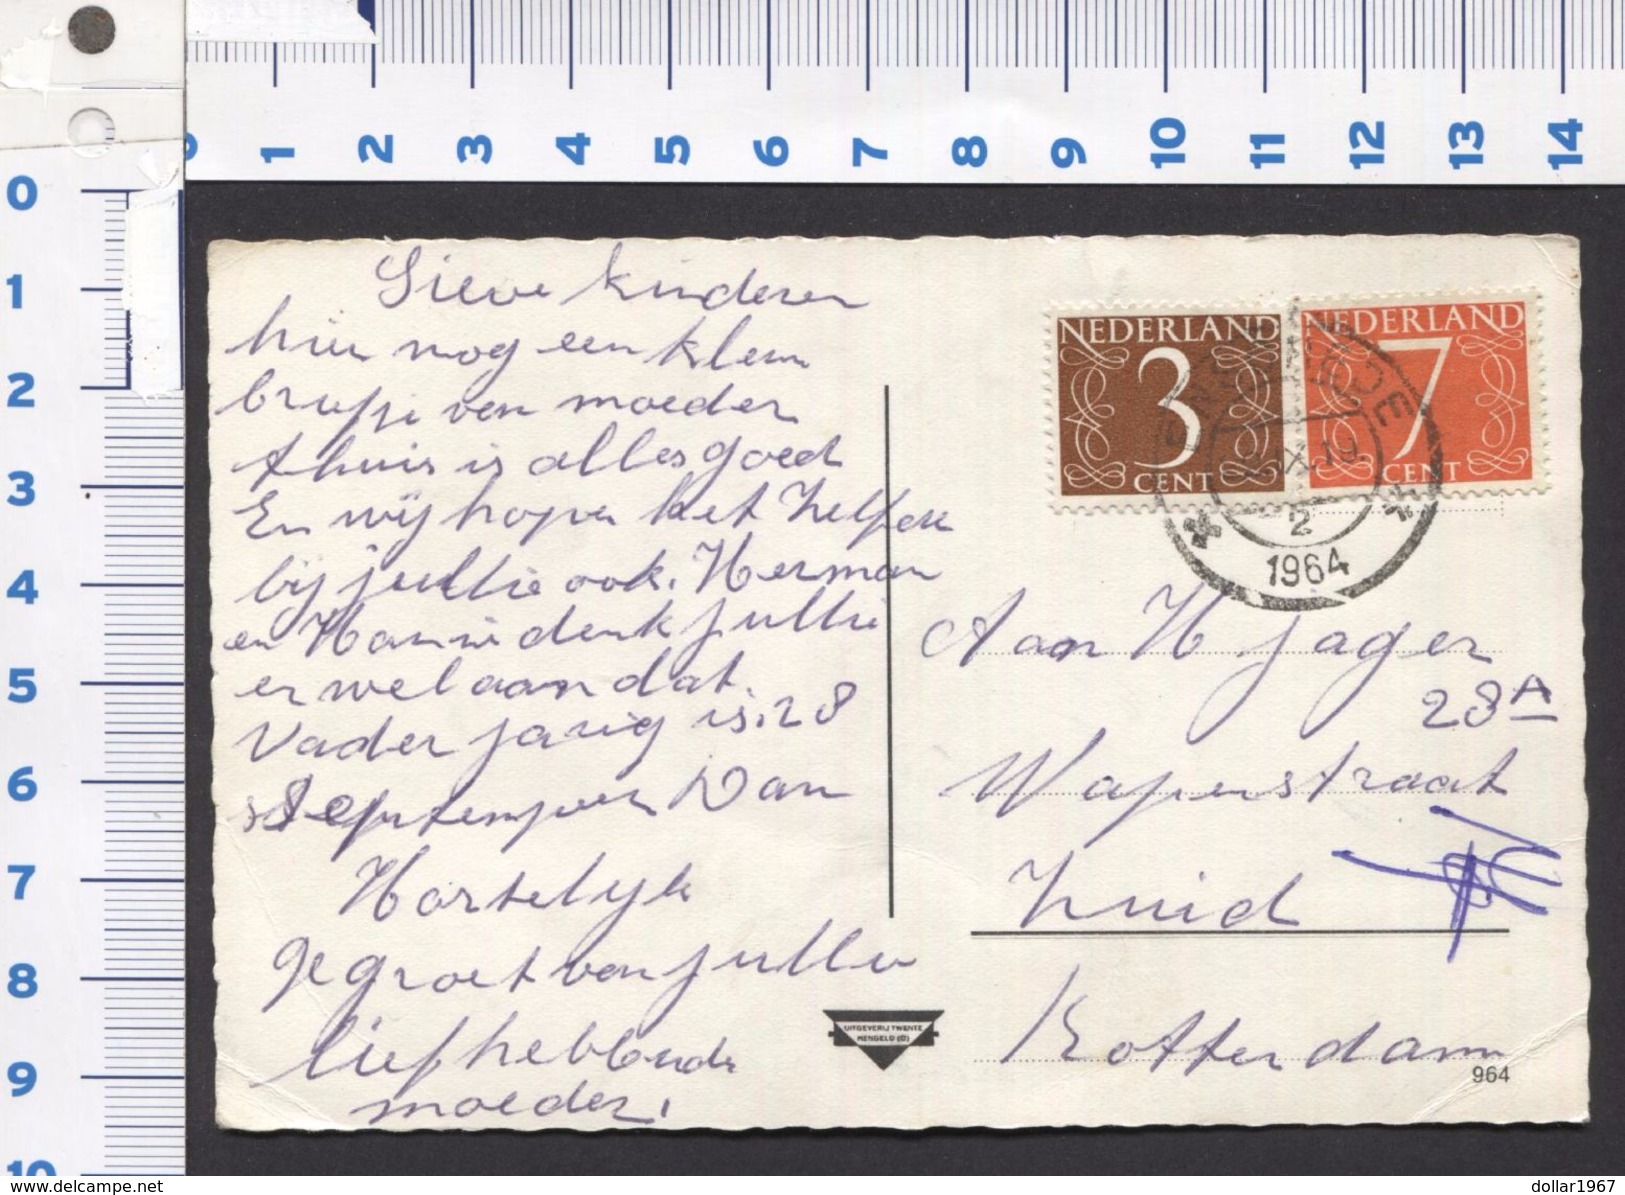 0
1
2
3
4
5
6
7
8
9
10
11
12
13
14
0
1
2
3
4
5
6
7
8
9
10
Lieve kinderen
hier nog een klein
briefje van moeder
thuis is alles goed
En wij hopen het Zelfde
bij jullie ook. Herman
en Hannie denk jullie
er wel aan dat.
Vader jarig is. 28
September Dan
Hartelijk
gegroet van jullie
liefhebbende
moeder.
NEDERLAND
3
CENT
NEDERLAND
7
CENT
2
1964
Aan H Jager
28A
Wapenstraat
Zuid
Rotterdam
964
UITGEVERIJ TWENTE
HENGELO (O)
www.delcampe.net
dollar1967